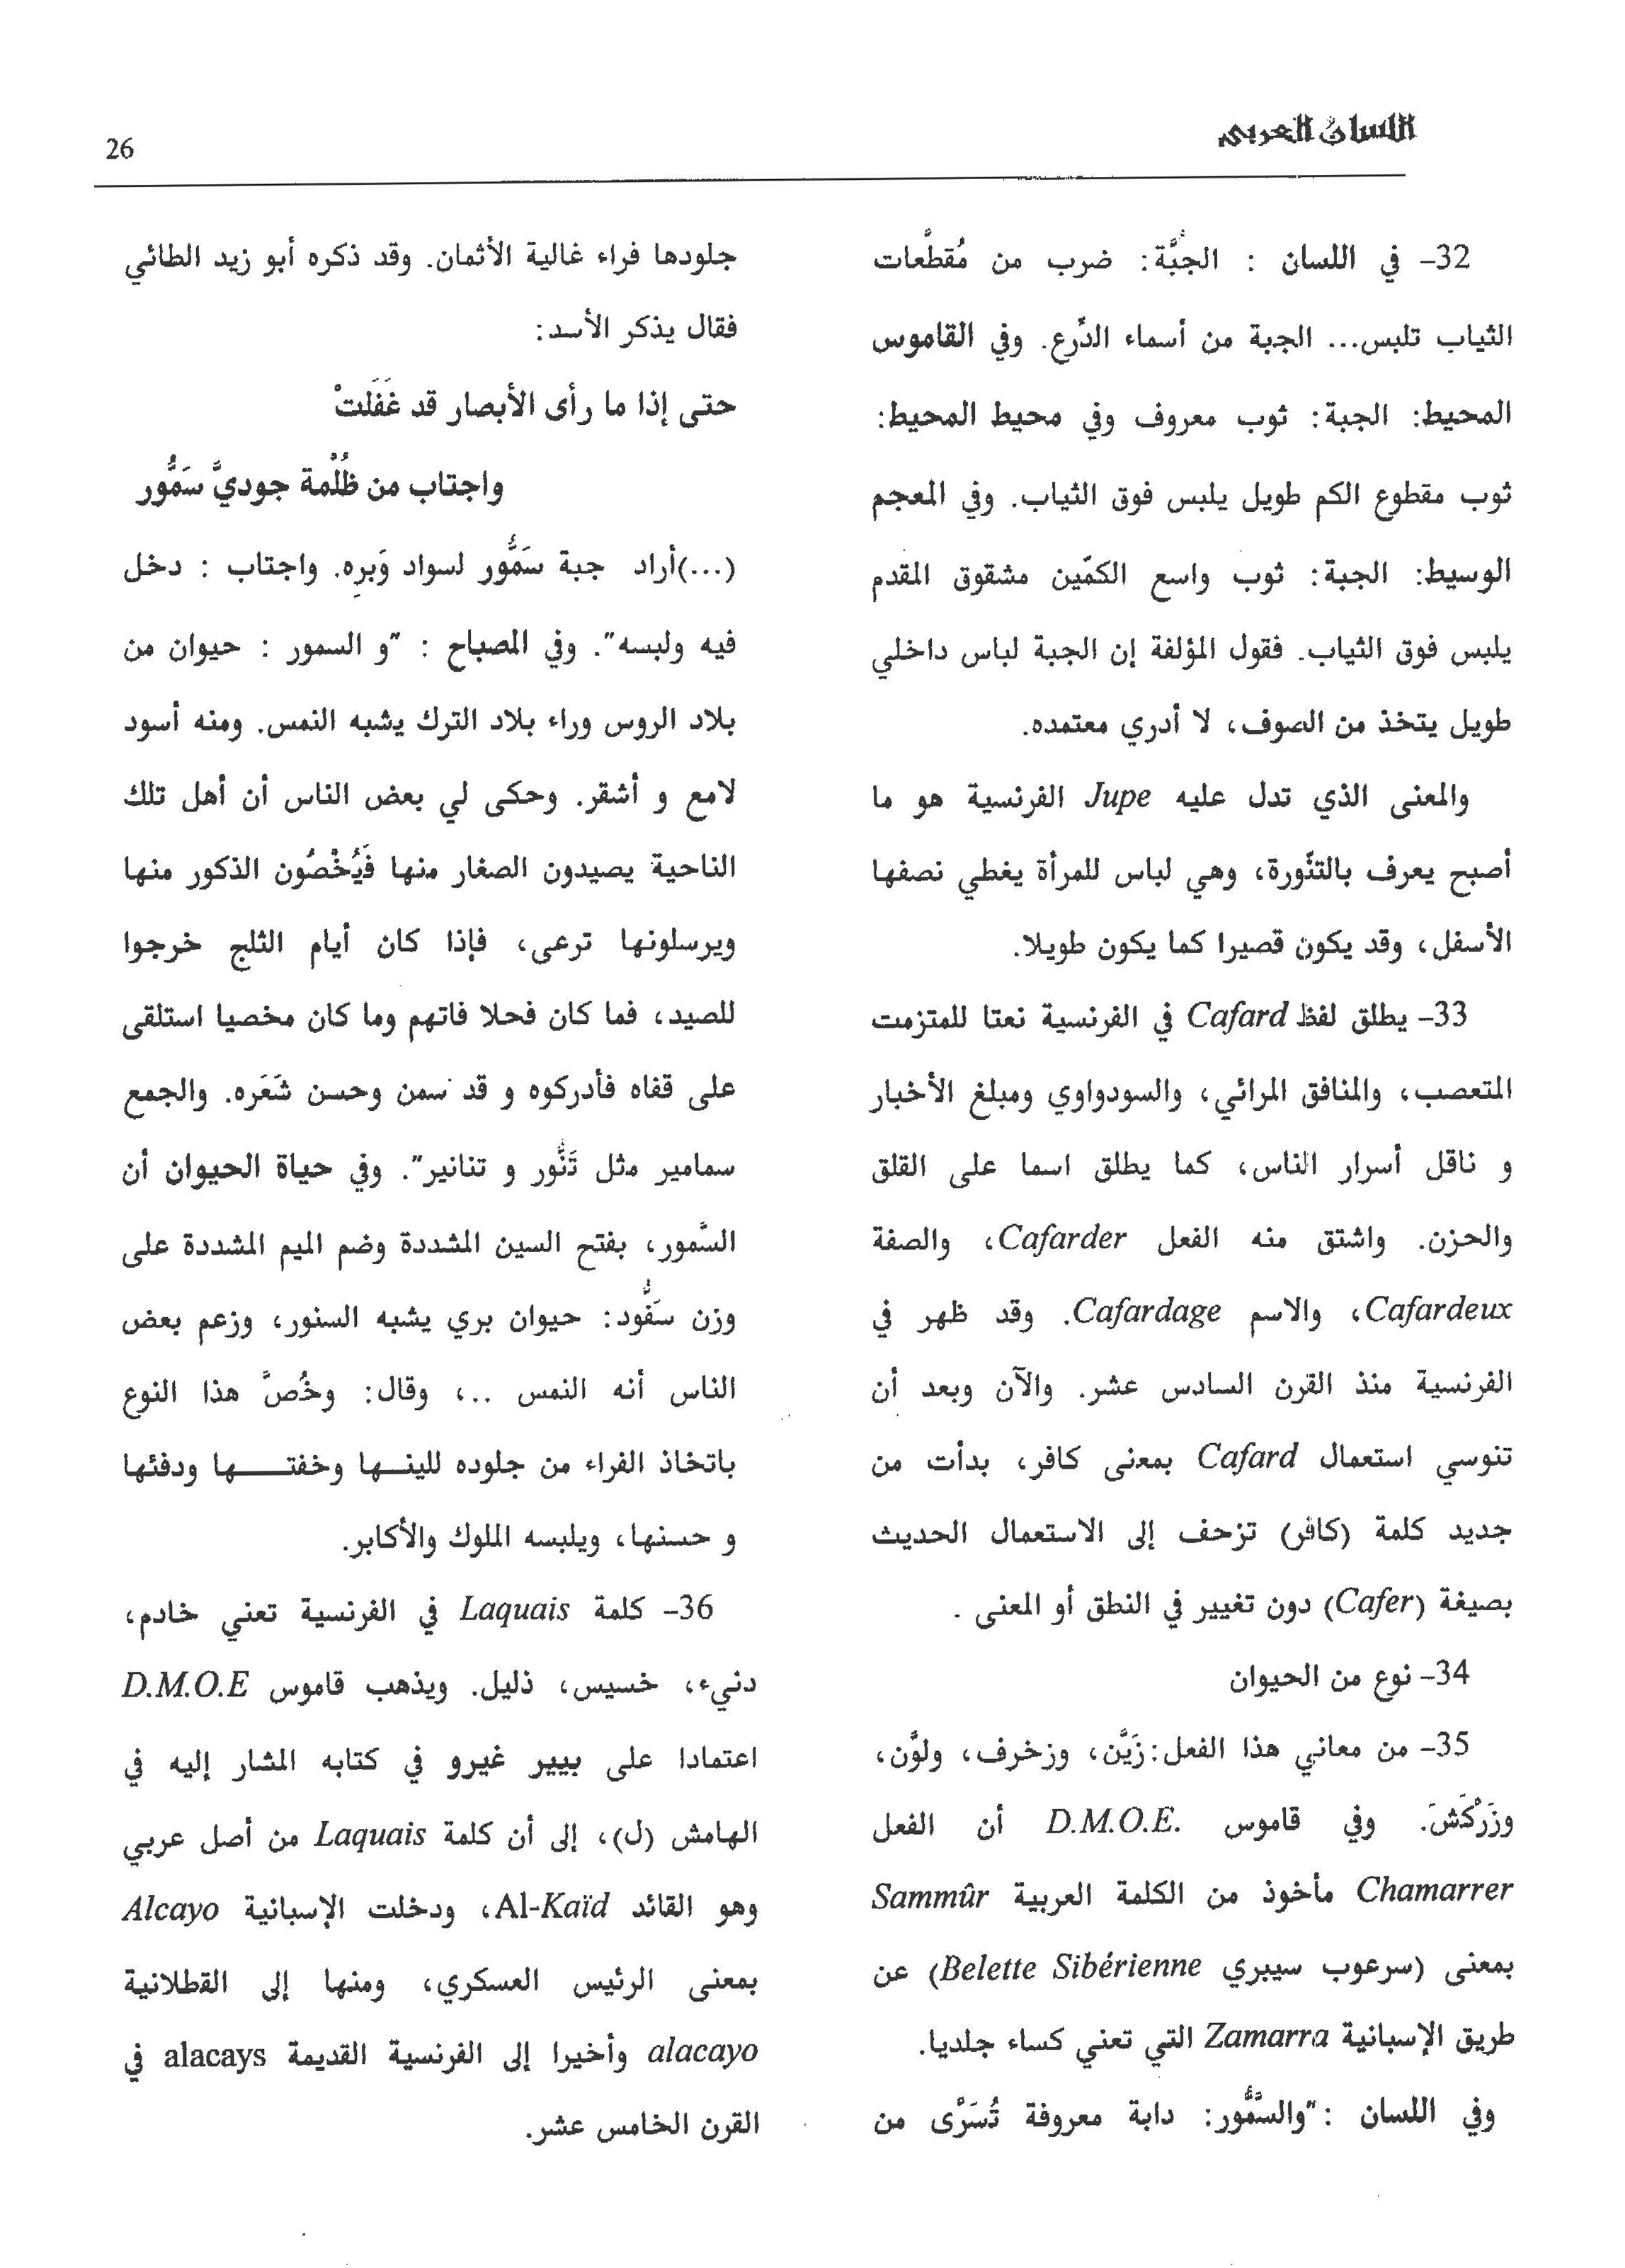 اللسان العربي
26
32- في اللسان : الجُبَّة: ضرب من مُقطَّعات
الثياب تلبس... الجبة من أسماء الدِّرع. وفي القاموس
المحيط: الجبة: ثوب معروف وفي محيط المحيط:
ثوب مقطوع الكم طويل يلبس فوق الثياب. وفي المعجم
الوسيط: الجبة: ثوب واسع الكمّين مشقوق المقدم
يلبس فوق الثياب. فقول المؤلفة إن الجبة لباس داخلي
طويل يتخذ من الصوف، لا أدري معتمده.
والمعنى الذي تدل عليه Jupe الفرنسية هو ما
أصبح يعرف بالتنّورة، وهي لباس للمرأة يغطي نصفها
الأسفل، وقد يكون قصيرا كما يكون طويلا.
33- يطلق لفظ Cafard في الفرنسية نعتا للمتزمت
المتعصب، والمنافق المرائي، والسوداوي ومبلغ الأخبار
و ناقل أسرار الناس، كما يطلق اسما على القلق
والحزن. واشتق منه الفعل Cafarder، والصفة
Cafardeux، والاسم Cafardage. وقد ظهر في
الفرنسية منذ القرن السادس عشر. والآن وبعد أن
تنوسي استعمال Cafard بمعنى كافر، بدأت من
جديد كلمة (كافر) تزحف إلى الاستعمال الحديث
بصيغة (Cafer) دون تغيير في النطق أو المعنى .
34- نوع من الحيوان
35- من معاني هذا الفعل: زَيَّن، وزخرف، ولوَّن،
وزَرْكَشَ. وفي قاموس D.M.O.E. أن الفعل
Chamarrer مأخوذ من الكلمة العربية Sammûr
بمعنى (سرعوب سيبري Belette Sibérienne) عن
طريق الإسبانية Zamarra التي تعني كساء جلديا.
وفي اللسان : "والسَّمُّور: دابة معروفة تُسَوَّى من
جلودها فراء غالية الأثمان. وقد ذكره أبو زيد الطائي
فقال يذكر الأسد:
حتى إذا ما رأى الأبصار قد غَفَلَتْ
واجتاب من ظُلْمة جوديَّ سَمُّور
(...)أراد جبة سَمُّور لسواد وَبره. واجتاب : دخل
فيه ولبسه". وفي المصباح : "و السمور : حيوان من
بلاد الروس وراء بلاد الترك يشبه النمس. ومنه أسود
لامع و أشقر. وحكى لي بعض الناس أن أهل تلك
الناحية يصيدون الصغار منها فَيُخْصُون الذكور منها
ويرسلونها ترعى، فإذا كان أيام الثلج خرجوا
للصيد، فما كان فحلا فاتهم وما كان مخصيا استلقى
على قفاه فأدركوه و قد سمن وحسن شَعَره. والجمع
سمامير مثل تَنُّور و تنانير". وفي حياة الحيوان أن
السَّمور، بفتح السين المشددة وضم الميم المشددة على
وزن سَفُّود: حيوان بري يشبه السنور، وزعم بعض
الناس أنه النمس ..، وقال: وخُصَّ هذا النوع
باتخاذ الفراء من جلوده للينـها وخفتــها ودفئها
و حسنها، ويلبسه الملوك والأكابر.
36- كلمة Laquais في الفرنسية تعني خادم،
دنيء، خسيس، ذليل. ويذهب قاموس D.M.O.E
اعتمادا على بيير غيرو في كتابه المشار إليه في
الهامش (ل)، إلى أن كلمة Laquais من أصل عربي
وهو القائد Al-Kaïd، ودخلت الإسبانية Alcayo
بمعنى الرئيس العسكري، ومنها إلى القطلانية
alacayo وأخيرا إلى الفرنسية القديمة alacays في
القرن الخامس عشر.